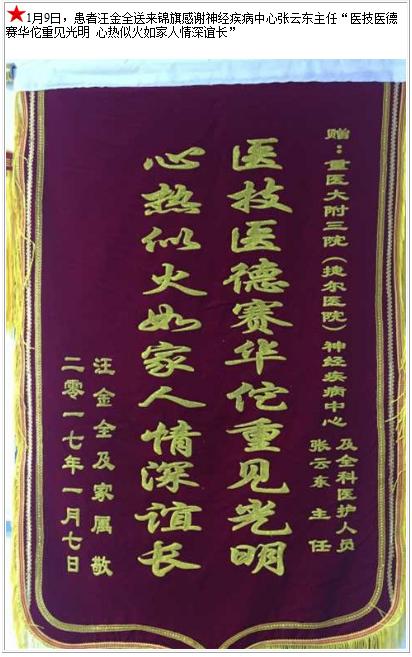 1月9日，患者汪金全送来锦旗感谢神经疾病中心张云东主任“医技医德
赛华佗重见光明 心热似火如家人情深谊长”
赠：重医大附三院（捷尔医院）神经疾病中心
张云东 主任
及全科医护人员
医技医德赛华佗重见光明
心热似火如家人情深谊长
汪金全及家属敬
二零一七年一月七日